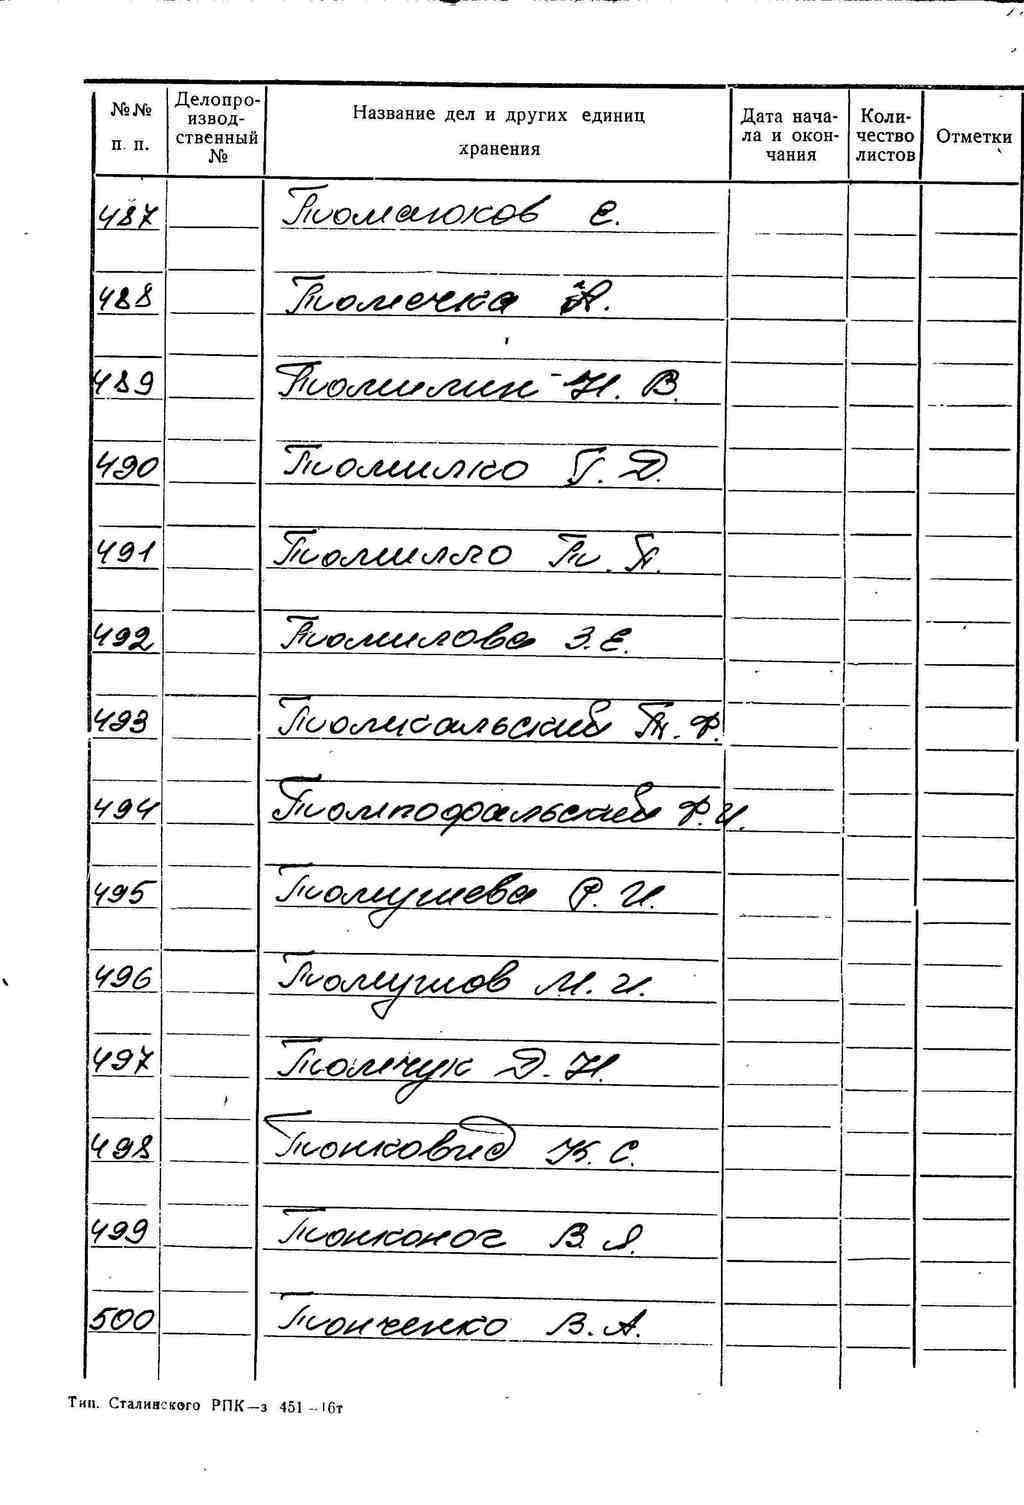 №№ п. п. Делопроизводственный № Название дел и других единиц хранения Дата начала и окончания Количество листов Отметки
487 Томаюков Е.
488 Томечка А.
489 Томилин Н. В.
490 Томилко Г. Д.
491 Томилло Т. П.
492 Томилова З. Е.
493 Томсальский П. Ф.
494 Ф. И.
495 Томушева Р. И.
496 Томушов М. И.
497 Томчук Д. Н.
498 Тонковид К. С.
499 Тонконог В. Я.
500 Тонченко В. А.
Тип. Сталинского РПК—з 451—16т